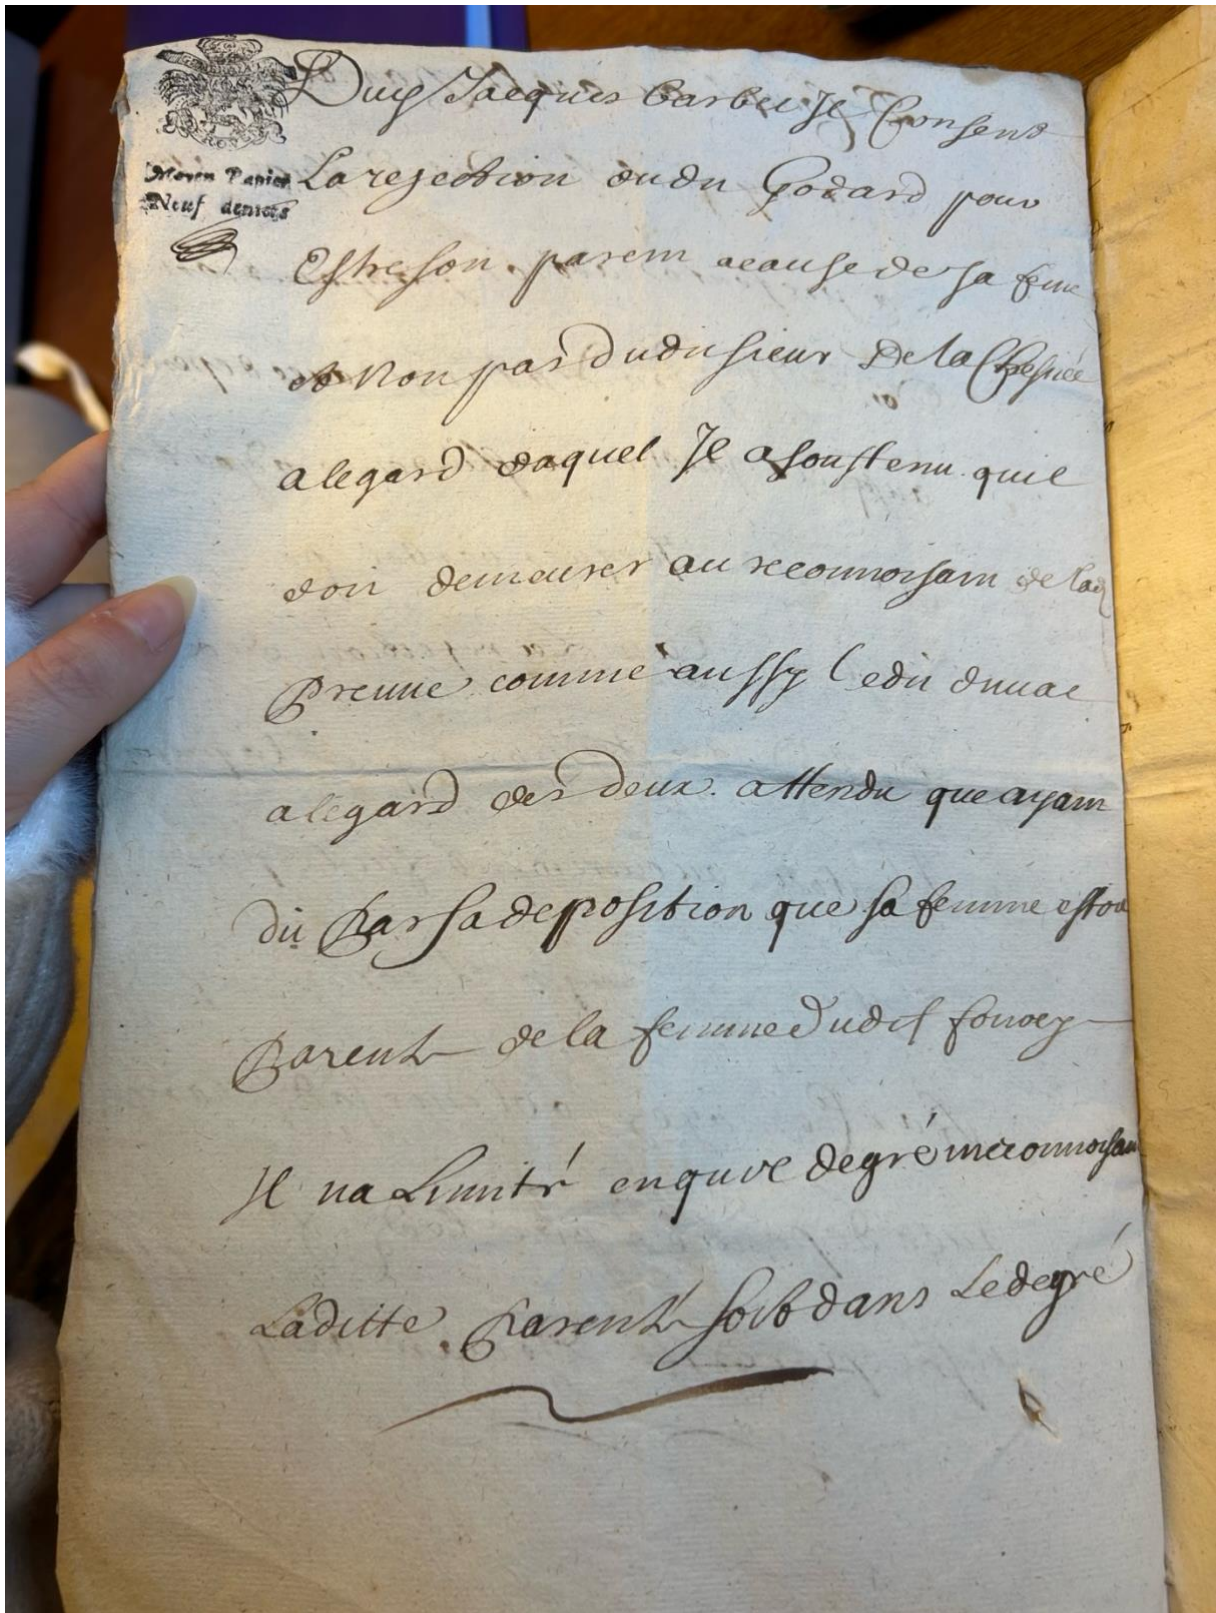 Moyen Papier
Neuf deniers
Duq Jacques barbei Je Consent
La rejection dudn Godard pour
Estre son parem acause de sa feme
et Non pas dudit sieur De la Chesnée
alegard daquel Jl a soustenu quil
doit demeurer au reconnoisam de lad
Preuue comme aussy Ledit
alegard des deux. attendu que ayam
dit Par sa deposition que sa femme estoit
Parente de la femme dudit
Jl na Limité enquel degré meconnoisam
Laditte Parenté soit dans Le degré